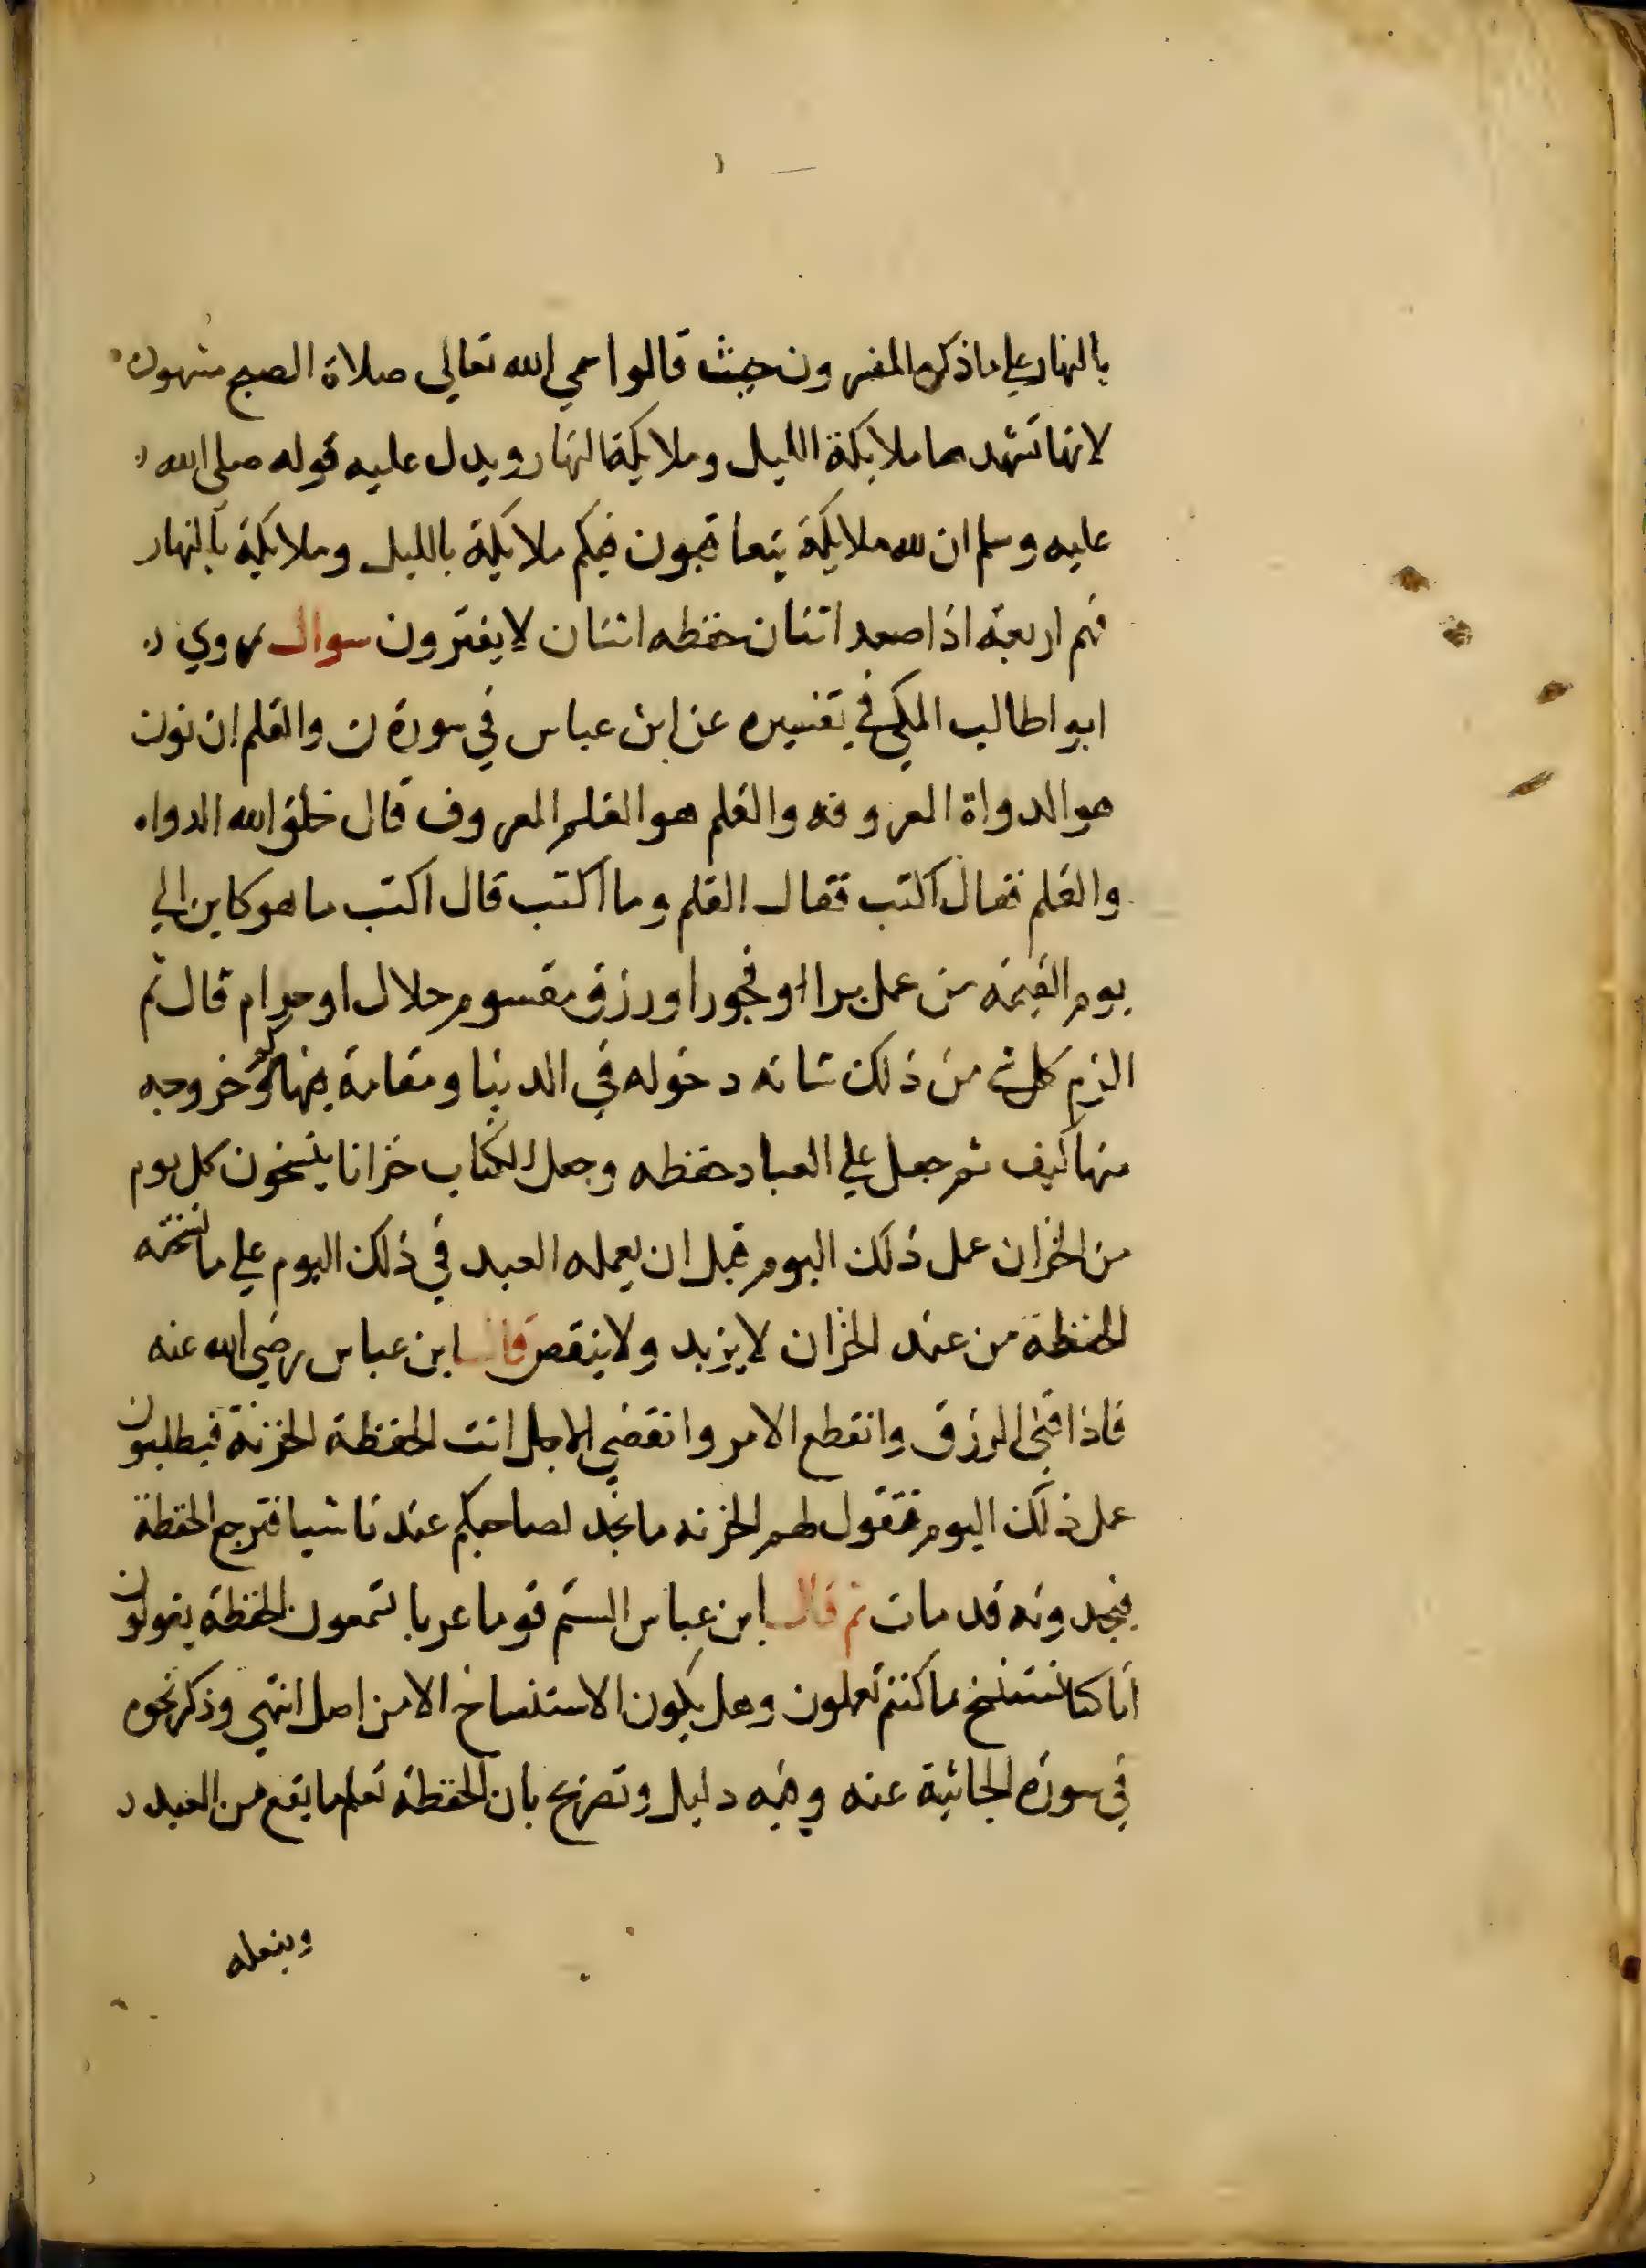 بالنهار علي ما ذكره المفسرون حيث قالوا سمي الله تعالي صلاة الصبح مشهودة
لانها تشهدها ملايكة الليل وملايكة النهار ويدل عليه قوله صلى الله
عليه وسلم ان لله ملايكة يتعاقبون فيكم ملايكة بالليل وملايكة بالنهار
فهم اربعة اذا صعد اثنان حفظه اثنان لا يفترون سوال روي
ابو اطالب المكي في تفسيره عن ابن عباس في سورة ن والقلم ان نون
هو الدواة المعروفه والقلم هو القلم المعروف قال خلق الله الدواه
والقلم فقال اكتب فقال القلم وما اكتب قال اكتب ما هو كاين الي
يوم القيمه من عمل برا او فجورا ورزق مقسوم حلال او حرام قال ثم
الزم كل شي من ذلك شانه دخوله في الدنيا ومقامه فيها كم وخروجه
منها كيف ثم جعل علي العباد حفظه وجعل للكتاب خزانا ينسخون كل يوم
من الخزان عمل ذلك اليوم قبل ان يعمله العبد في ذلك اليوم علي ما نسخته
الحفظة من عند الخزان لا يزيد ولا ينقص قال ابن عباس رضي الله عنه
فاذا فني الرزق وانقطع الامر وانقضي الاجل اتت الحفظة الخزنة فيطلبون
عمل ذلك اليوم فتقول لهم الخزنه ما نجد لصاحبكم عندنا شيا فترجع الحفظة
فيجدونه قد مات ثم قال ابن عباس الستم قوما عربا تسمعون الحفظة يقولون
انا كنا نستنسخ ما كنتم تعملون وهل يكون الاستنساخ الا من اصل انتهي وذكر نحوه
في سورة الجاثية عنه وفيه دليل وتصريح بان الحفظة تعلم ما يقع من العبد
ويفعله